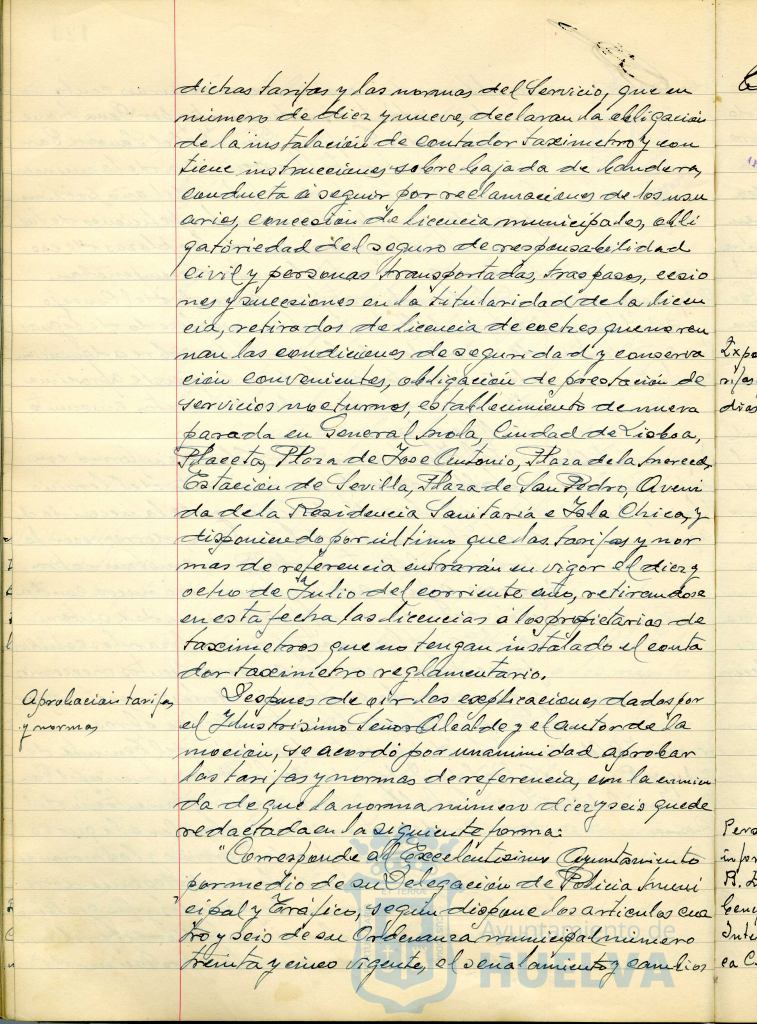 dichas tarifas y las normas del Servicio, que en
número de diez y nueve, declaran la obligación
de la instalación de contador taximetro y con
tiene instrucciones sobre bajada de bandera,
conducta a seguir por reclamaciones de los usu
arios, concesión de licencia municipales, obli
gatoriedad del seguro de responsabilidad
civil y personas transportadas, traspasos, cesio
nes y sucesiones en la titularidad de la licen
cia, retirados de licencia de coches que no reu
nan las condiciones de seguridad y conserva
ción convenientes, obligación de prestación de
servicios nocturnos, establecimiento de nueva
parada en General Mola, Ciudad de Lisboa,
Placeta, Plaza de Jose Antonio, Plaza de la Merced,
Estación de Sevilla, Plaza de San Pedro, Aveni
da de la Residencia Sanitaria e Isla Chica, y
disponiendo por último que las tarifas y nor
mas de referencia entrarán en vigor el diez y
ocho de Julio del corriente año, retirandose
en esta fecha las licencias a los propietarios de
taximetros que no tengan instalado el conta
dor taximetro reglamentario.
Aprobacion tarifas
y normas
Despues de oir las explicaciones dadas por
el Ilustrisimo Señor Alcalde y el autor de la
moción, se acordó por unanimidad aprobar
las tarifas y normas de referencia, con la enmien
da de que la norma número diez y seis quede
redactada en la siguiente forma:
"Corresponde al Excelentisimo Ayuntamiento
por medio de su Delegación de Policia Muni
cipal y Tráfico, según dispone los articulos cua
tro y seis de su Ordenanza municipal número
treinta y cinco vigente, el señalamiento y cambios
Ayuntamiento de
HUELVA